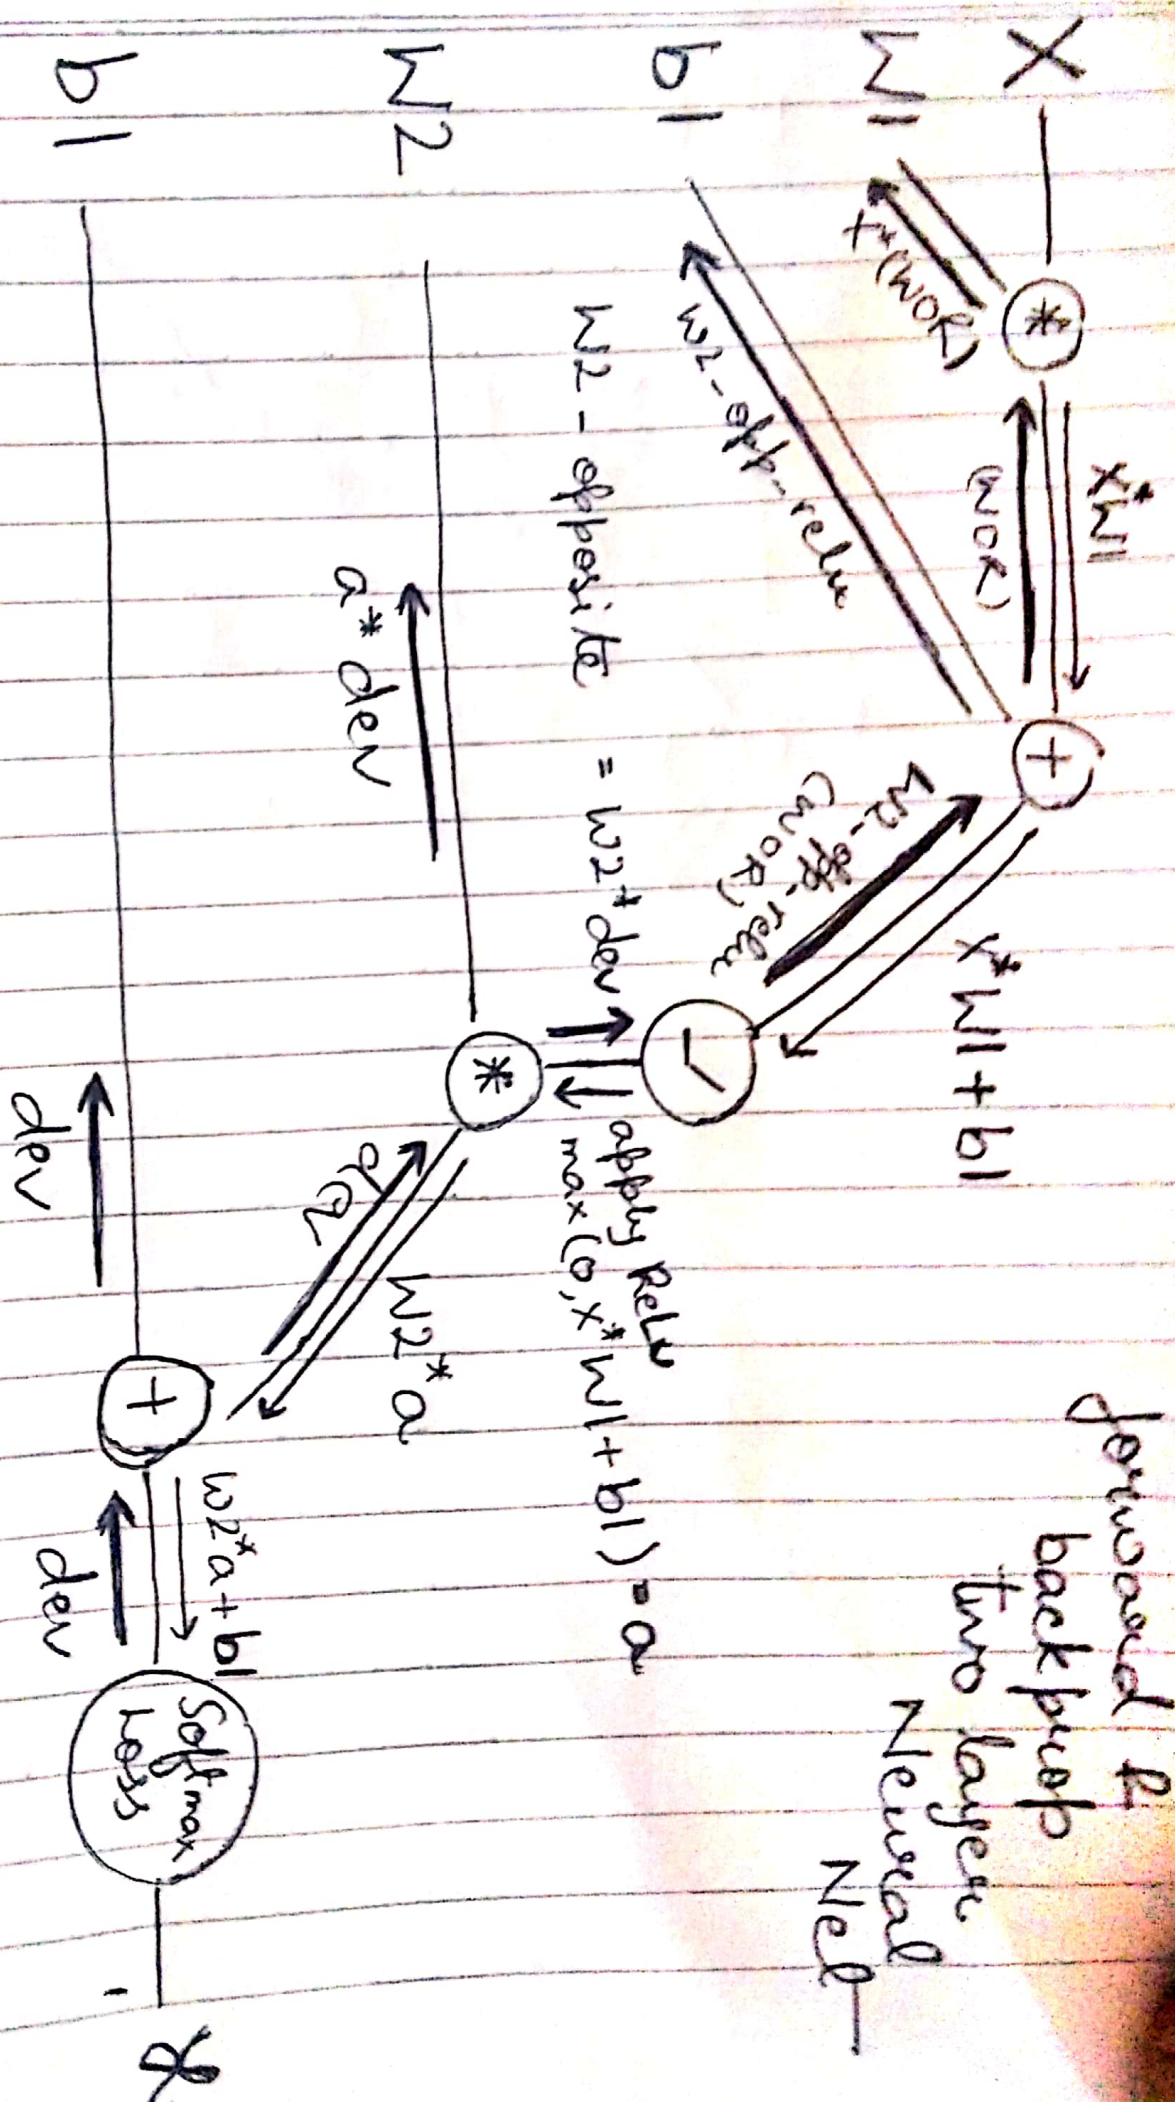 forward &
backprop
two layer
Neural
Net
X
W1
b1
W2
b1
*
X*W1
(WOR)
X*(WOR)
+
w2-opp-relu
X*W1+b1
W2-opp-relu
(WOR)
W2-opposite = W2*dev
apply ReLu
max(0,X*W1+b1)=a
*
a*dev
W2*a
+
dev
W2*a+b1
dev
Softmax
Loss